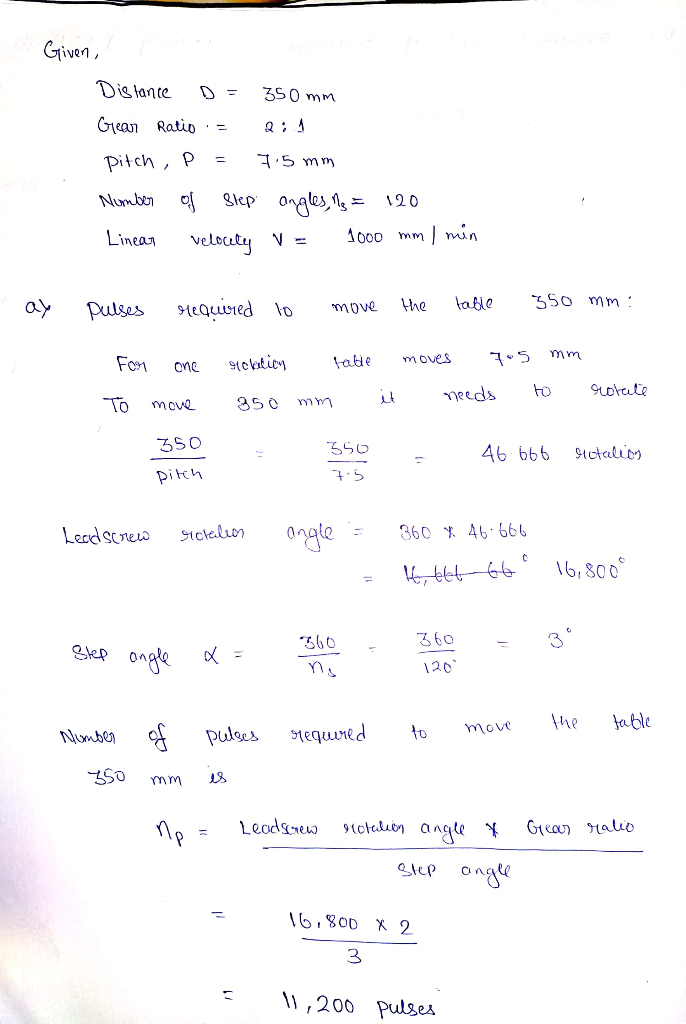 Given,
Distance D = 350 mm
Gear Ratio = 2 : 1
Pitch, P = 7.5 mm
Number of Step angles, ns = 120
Linear velocity V = 1000 mm / min
a) Pulses required to move the table 350 mm :
For one rotation table moves 7.5 mm
To move 350 mm it needs to rotate
350 / pitch = 350 / 7.5 = 46.666 rotation
Leadscrew rotation angle = 360 * 46.666
= 16,666.66° 16,800°
Step angle α = 360 / ns = 360 / 120° = 3°
Number of pulses required to move the table
350 mm is
np = Leadscrew rotation angle * Gear ratio / Step angle
= 16,800 x 2 / 3
= 11,200 pulses